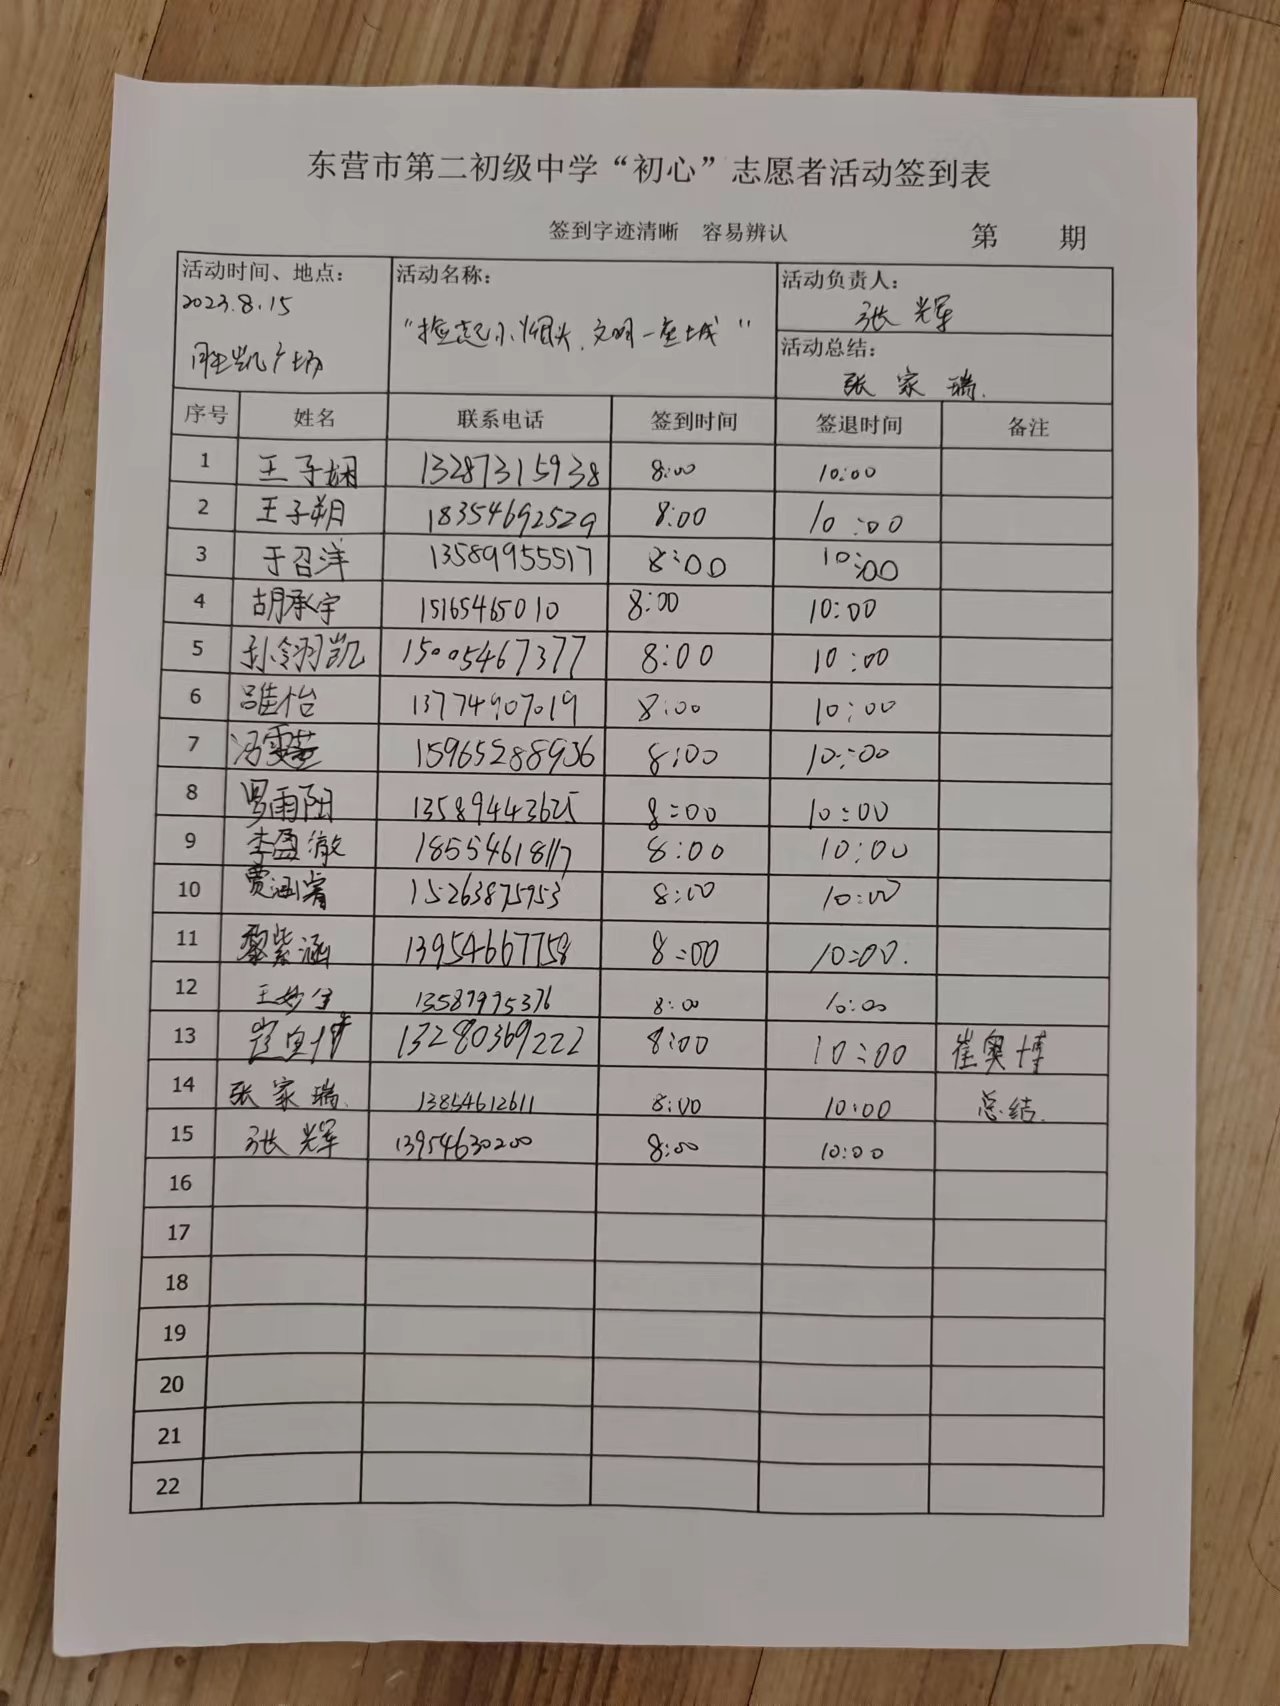 东营市第二初级中学“初心”志愿者活动签到表
签到字迹清晰 容易辨认 第 期
活动时间、地点：
2023.8.15
胜凯广场
活动名称：
“捡起小烟头，文明一座城”
活动负责人：
张辉
活动总结：
张家瑞.
序号 姓名 联系电话 签到时间 签退时间 备注
1 王子娴 13287315938 8:00 10:00
2 王子朔 18354692529 8:00 10:00
3 于召洋 13589955517 8:00 10:00
4 胡承宇 15165465010 8:00 10:00
5 孙翎凯 15005467377 8:00 10:00
6 怡 13774907019 8:00 10:00
7 冯雯 15965288936 8:00 10:00
8 罗雨阳 13589443625 8:00 10:00
9 李盈澈 18554618117 8:00 10:00
10 贾涵睿 15263875953 8:00 10:00
11 黎紫涵 13954667758 8:00 10:00.
12 王妙 13589995376 8:00 10:00
13 崔奥博 13280369222 8:00 10:00 崔奥博
14 张家瑞. 13854612611 8:00 10:00 总结.
15 张辉 13954630200 8:00 10:00
16
17
18
19
20
21
22